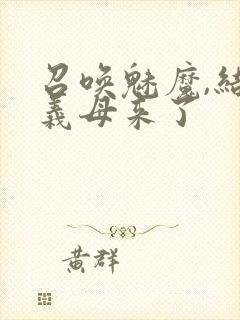 召唤魅魔,結
義母来了
黄群